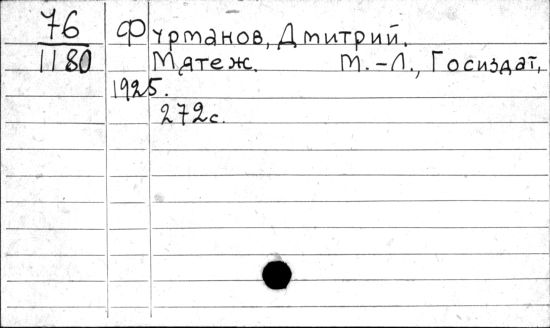 76
1180
Фурманов, Дмитрий.
Мятеж. М.-Л., Госиздат,
1925.
272с.